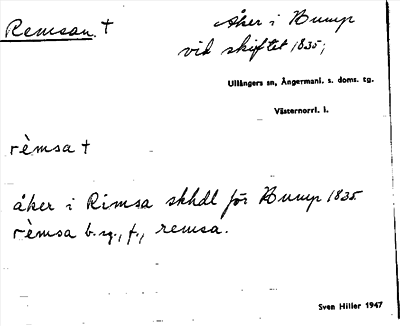 Remsan. †
Åker i Bump
vid skiftet 1835;
Ullångers sn, Ångermanl. s. doms. tg.
Västernorrl. l.
rèmsa †
åker i Rimsa skhdl för Bump 1835
rèmsa b. sg., f., remsa.
Sven Hiller 1947